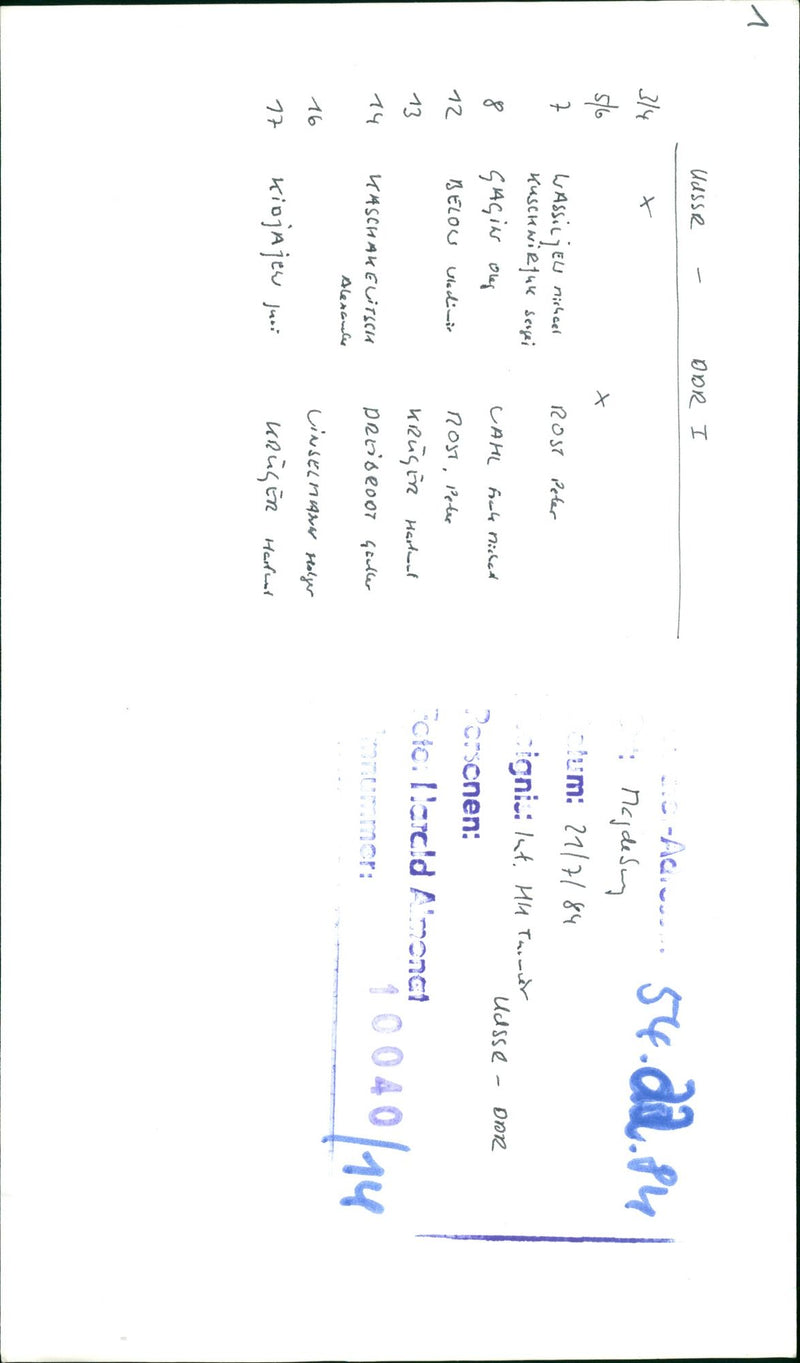 1
UdSSR - DDR I
3/4 X
5/6 X
7 WASSILJEW Michael ROST Peter
KUSCHNIRJUK Sergei
8 GAGIN Oleg WAHL Frank Michael
12 BELOW Wladimir ROST, Peter
13 KRÜGER Hartmut
14 KASCHAKEWITSCH DREIBRODT Günter
Alexander
16 WINSELMANN Holger
17 KIDJAJEW Juri KRÜGER Hartmut
54. .84
Magdeburg
21/7/84
Int. HH Turnier
UdSSR - DDR
Personen:
Foto: Harald Almonat
10040/14